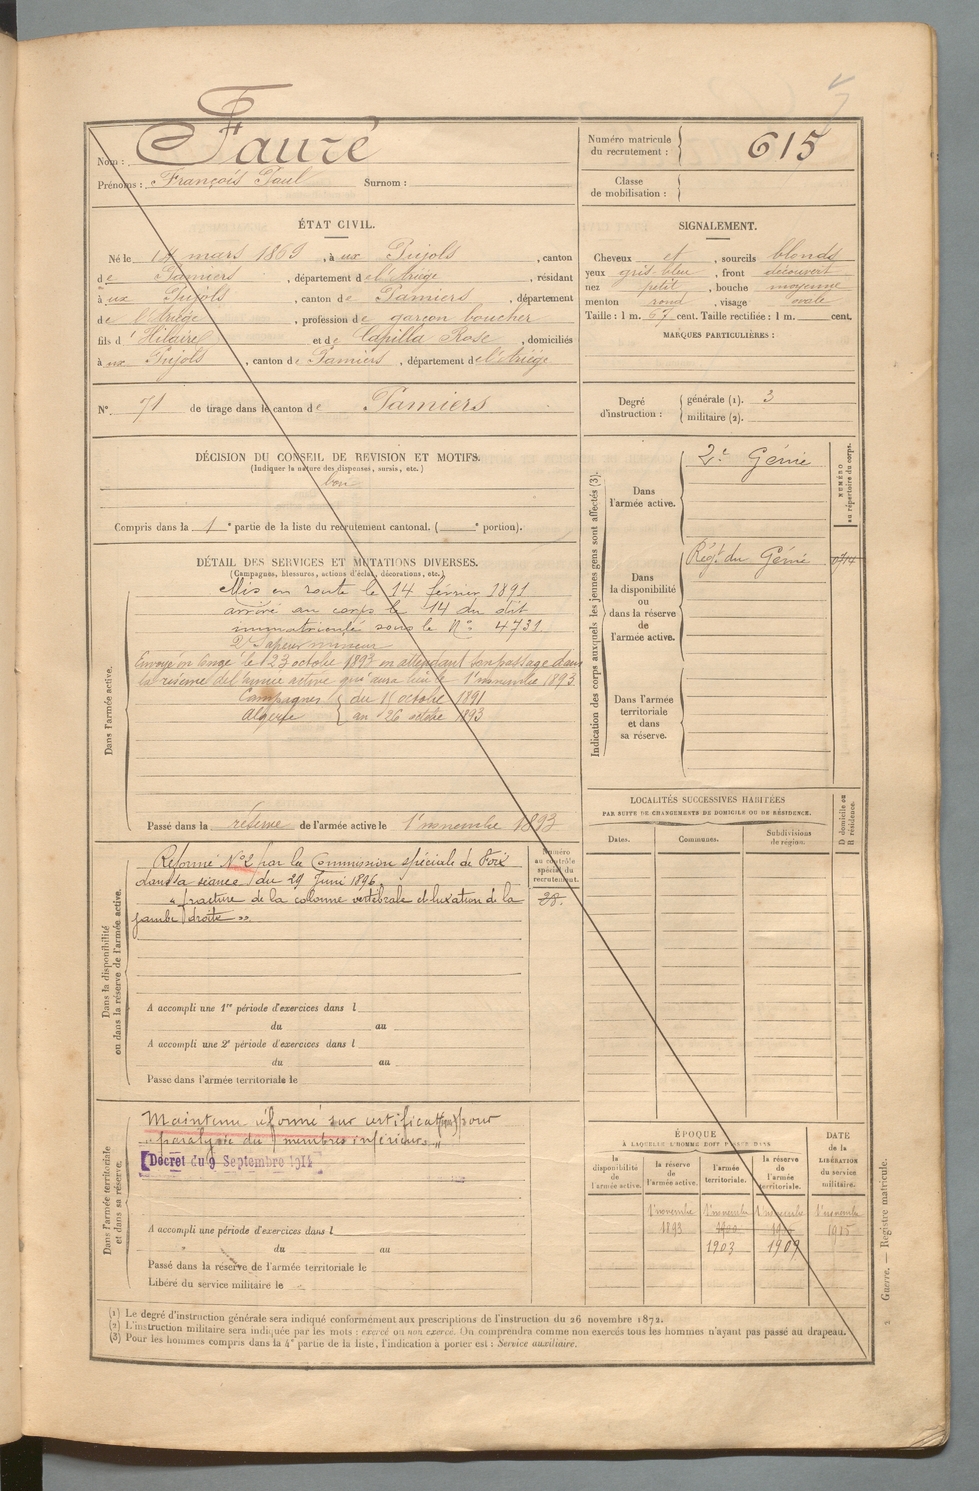 Nom : Fauré
Prénoms : François Paul Surnom :
Numéro matricule du recrutement : 615
Classe de mobilisation :
ÉTAT CIVIL.
Né le 14 mars 1869, à ux Pujols, canton
de Pamiers, département de l'Ariège, résidant
à ux Pujols, canton de Pamiers, département
de l'Ariège, profession de garçon boucher
fils d' Hilaire et de Capilla Rose, domiciliés
à ux Pujols, canton de Pamiers, département de l'Ariège
N° 71 de tirage dans le canton de Pamiers
SIGNALEMENT.
Cheveux et, sourcils blonds
yeux gris-bleu, front découvert
nez petit, bouche moyenne
menton rond, visage ovale
Taille : 1 m. 67 cent. Taille rectifiée : 1 m. cent.
MARQUES PARTICULIÈRES :
Degré d'instruction : générale (1). 3
militaire (2).
DÉCISION DU CONSEIL DE REVISION ET MOTIFS.
(Indiquer la nature des dispenses, sursis, etc.)
bon
Compris dans la 1e partie de la liste du recrutement cantonal. ( e portion).
DÉTAIL DES SERVICES ET MUTATIONS DIVERSES.
(Campagnes, blessures, actions d'éclat, décorations, etc.)
Dans l'armée active.
Mis en route le 14 février 1891
arrivé au corps le 14 du dit
immatriculé sous le N° 4731
2e Sapeur mineur
Envoyé en congé le 23 octobre 1893 en attendant son passage dans
la réserve de l'armée active qui aura lieu le 1r novembre 1893
Campagnes du 15 octobre 1891
Algérie au 26 octobre 1893
Passé dans la réserve de l'armée active le 1r novembre 1893
Indication des corps auxquels les jeunes gens sont affectés (3).
Dans l'armée active.
2e Génie
NUMÉRO au répertoire du corps.
Dans la disponibilité ou dans la réserve de l'armée active.
Régt du Génie
Dans l'armée territoriale et dans sa réserve.
Dans la disponibilité ou dans la réserve de l'armée active.
Réformé N°2 par la Commission spéciale de Foix
dans sa séance du 29 Juin 1896.
" fracture de la colonne vertébrale et luxation de la
jambe droite ".
Numéro au contrôle spécial du recrutement.
28.
A accompli une 1re période d'exercices dans l
du au
A accompli une 2e période d'exercices dans l
du au
Passé dans l'armée territoriale le
LOCALITÉS SUCCESSIVES HABITÉES
PAR SUITE DE CHANGEMENTS DE DOMICILE OU DE RÉSIDENCE.
Dates. Communes. Subdivisions de région.
D domicile ou R résidence.
Dans l'armée territoriale et dans sa réserve.
Maintenu réformé sur certificat pour
" paralysie des membres inférieurs "
Décret du 9 Septembre 1914
A accompli une période d'exercices dans l
du au
Passé dans la réserve de l'armée territoriale le
Libéré du service militaire le
ÉPOQUE
À LAQUELLE L'HOMME DOIT PASSER DANS
DATE de la LIBÉRATION du service militaire.
la disponibilité de l'armée active. la réserve de l'armée active. l'armée territoriale. la réserve de l'armée territoriale.
1r novembre 1r novembre 1r novembre 1r novembre
1893 1915
1903 1909
Guerre. — Registre matricule.
(1) Le degré d'instruction générale sera indiqué conformément aux prescriptions de l'instruction du 26 novembre 1872.
(2) L'instruction militaire sera indiquée par les mots : exercé ou non exercé. On comprendra comme non exercés tous les hommes n'ayant pas passé au drapeau.
(3) Pour les hommes compris dans la 4e partie de la liste, l'indication à porter est : Service auxiliaire.